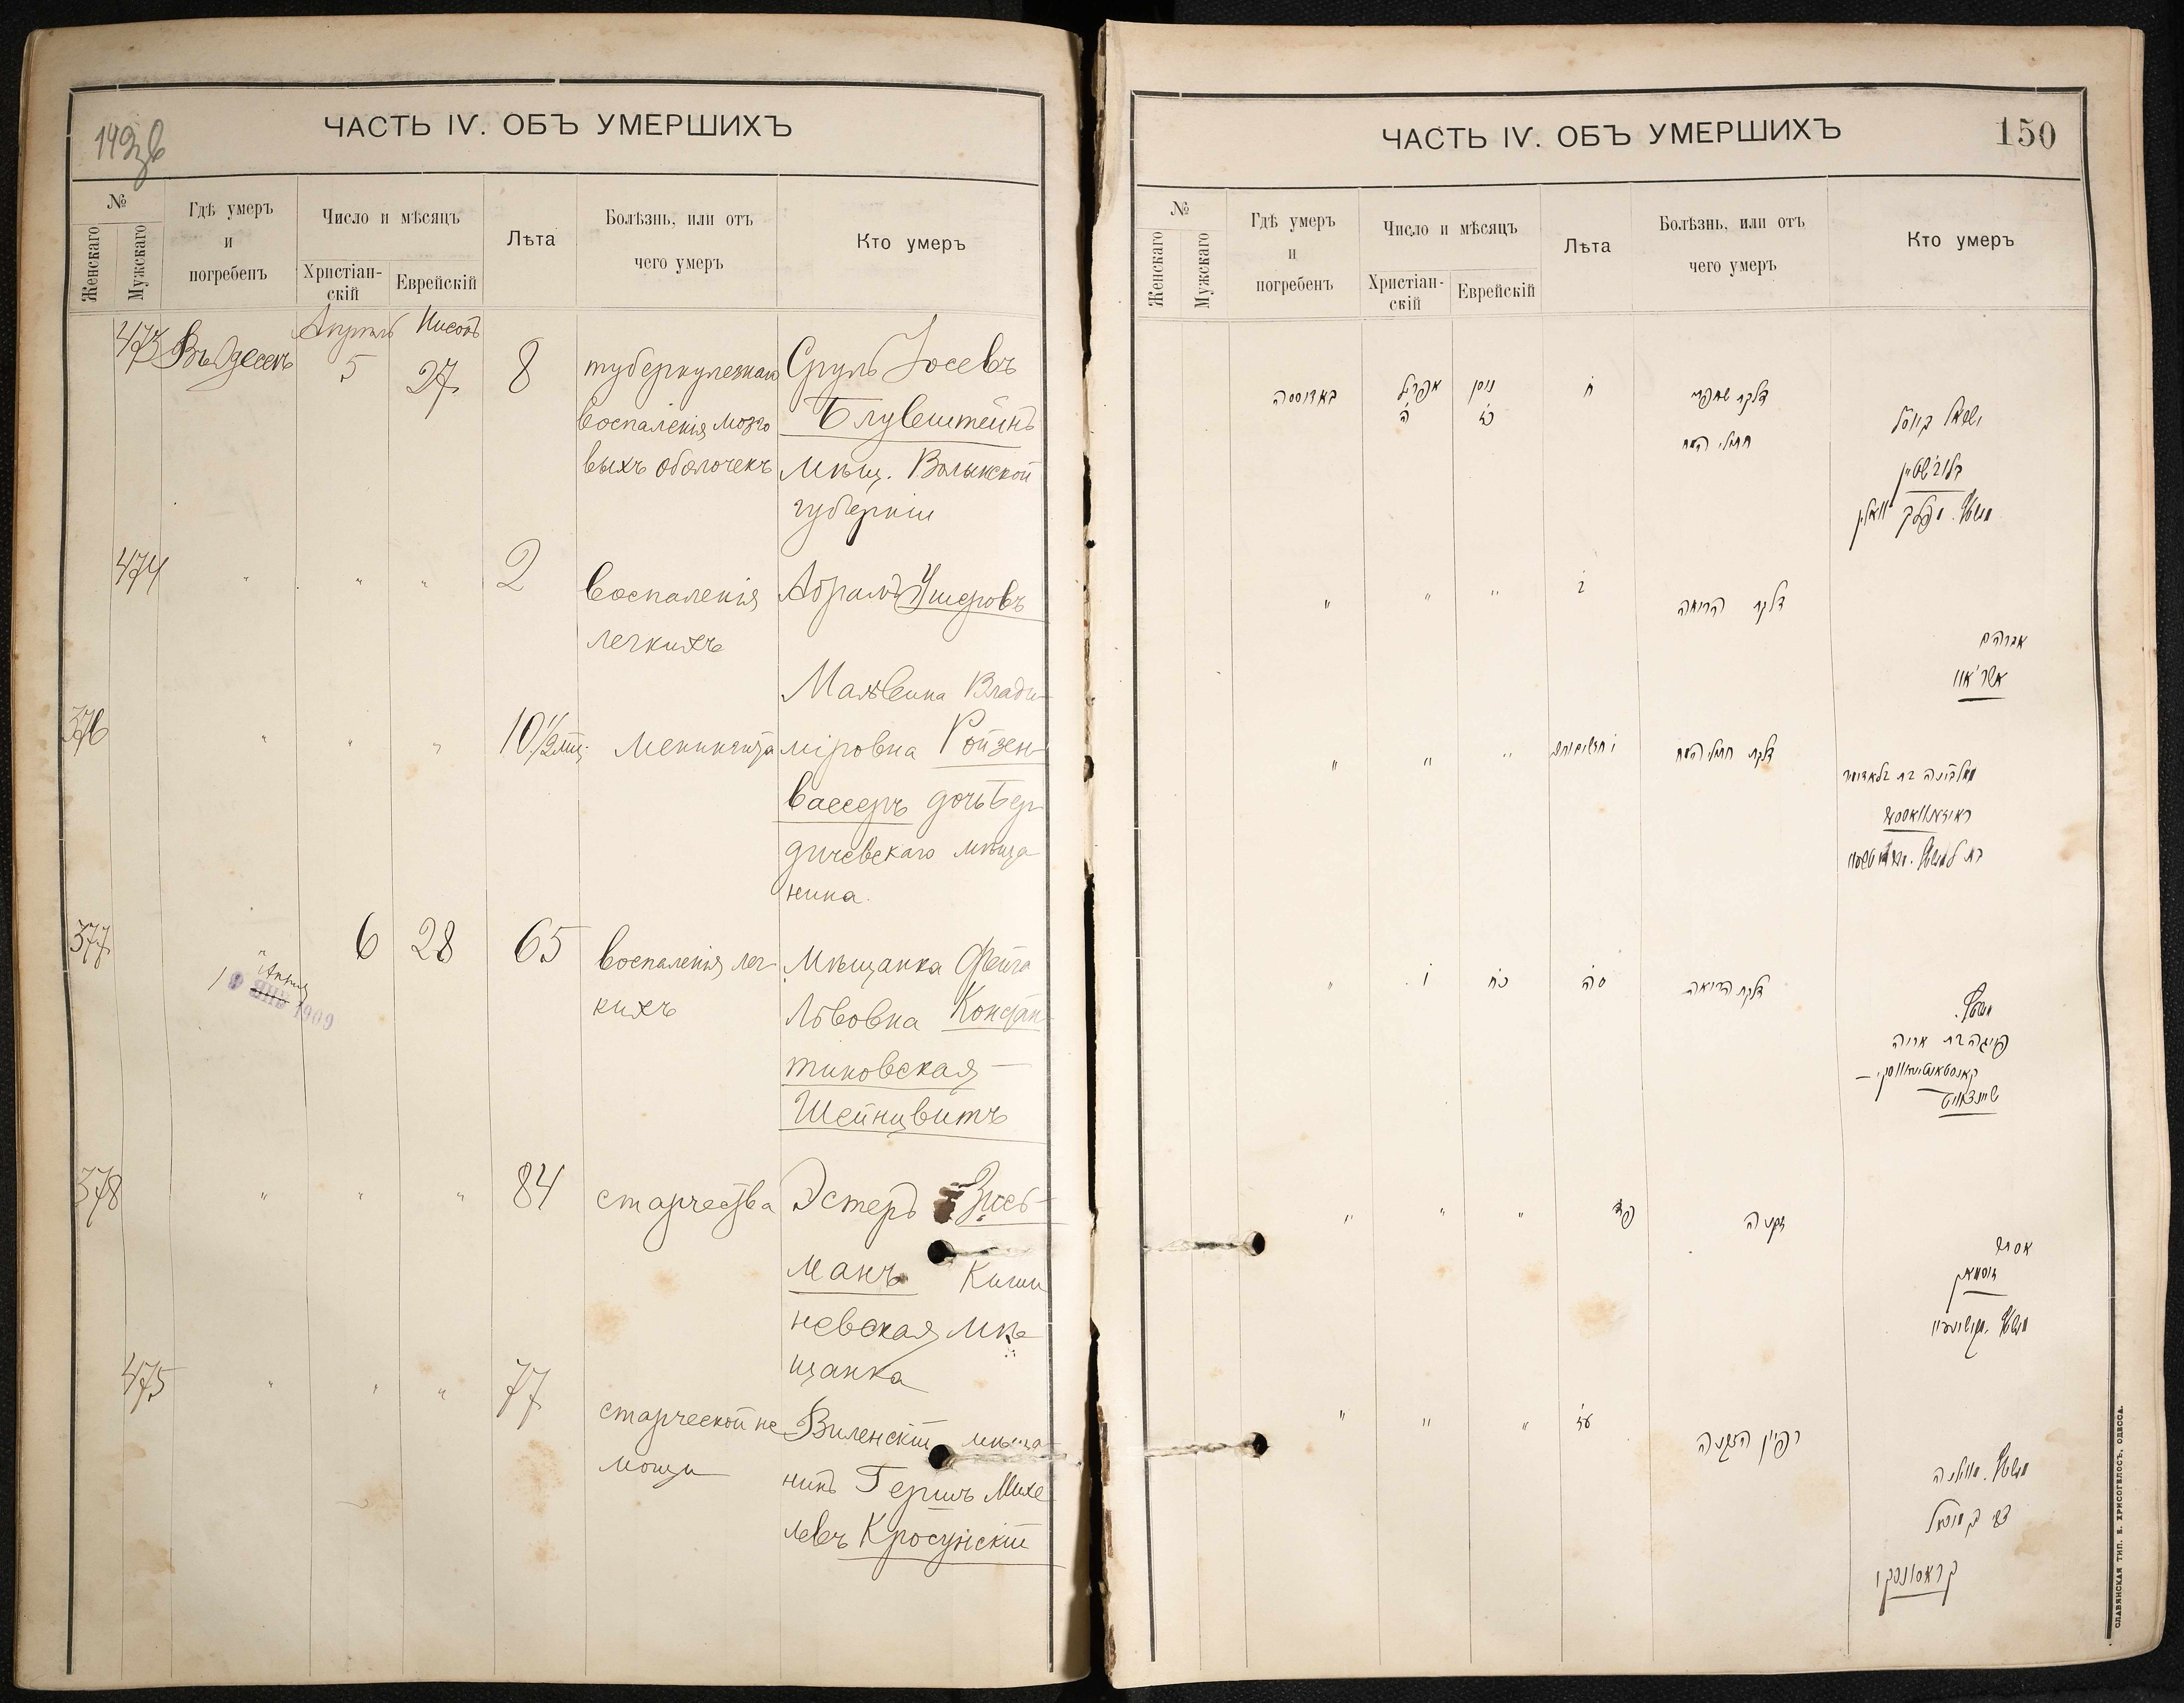 149об
ЧАСТЬ IV. ОБЪ УМЕРШИХЪ
№
Женскаго
Мужскаго
Гдѣ умеръ
и
погребенъ
Число и мѣсяцъ
Христіан-
скій
Еврейскій
Лѣта
Болѣзнь, или отъ
чего умеръ
Кто умеръ
473
Въ Одессѣ
Апрѣль
5
Нисонъ
27
8
туберкулезнаго
воспаленія мозго
выхъ оболочекъ
Сруль Іосевъ
Блувштейнъ
мѣщ. Волынской
губерніи
474
" " "
2
воспаленія
легкихъ
Абрамъ Ушеровъ
376
" " "
10 1/2 мѣс.
менингита
Мальвина Влади-
міровна Ройзен-
вассеръ дочь Бер
дичевскаго мѣща
нина.
377
"
6
28
65
воспаленія лег
кихъ
Мѣщанка Фейга
Львовна Констан
тиновская-
Шейнцвитъ
19 Апрѣля 1909
378
" " "
84
старчества
Эстеръ Зись-
манъ Киши
невская мѣ
щанка
475
" " "
77
старческой не
мощи
Виленскій мѣща
нинъ Гершъ Михе
левъ Кросунскій
ЧАСТЬ IV. ОБЪ УМЕРШИХЪ
150
№
Женскаго
Мужскаго
Гдѣ умеръ
и
погребенъ
Число и мѣсяцъ
Христіан-
скій
Еврейскій
Лѣта
Болѣзнь, или отъ
чего умеръ
Кто умеръ
באדוססה
אפריל
ה
ניסן
כז
ח
דלקת
ישראל ב יוסל
בלובשטיין
" " "
ב
דלקת הריאה
אברהם
אשר'אוו
" " "
דלקת
מאלווינה בת
"
ו
כח
סה
דלקת הריאה
פייגה בת אריה
קאנסטאנטינאווסקי -
שיינצוויט
" " "
פד
זקנה
אסתר
זיסמאן
" " "
עז
רפיון הזקנה
צבי בן מיכאל
קראסונסקי
СЛАВЯНСКАЯ ТИП. Е. ХРИСОГЕЛОСЪ, ОДЕССА.